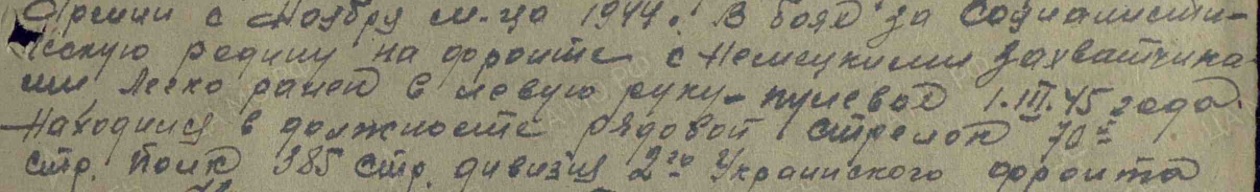 Армии с Ноябру м-ца 1944. В боях за Социалисти-
ческую родину на фронте с Немецкими захватчика
ми Легко ранен в левую руку - пулевой 1.III.45 года.
Находился в должносте рядовой стрелок 70й
стр. Полк 385 стр. дивизия 2го Украинского фронта